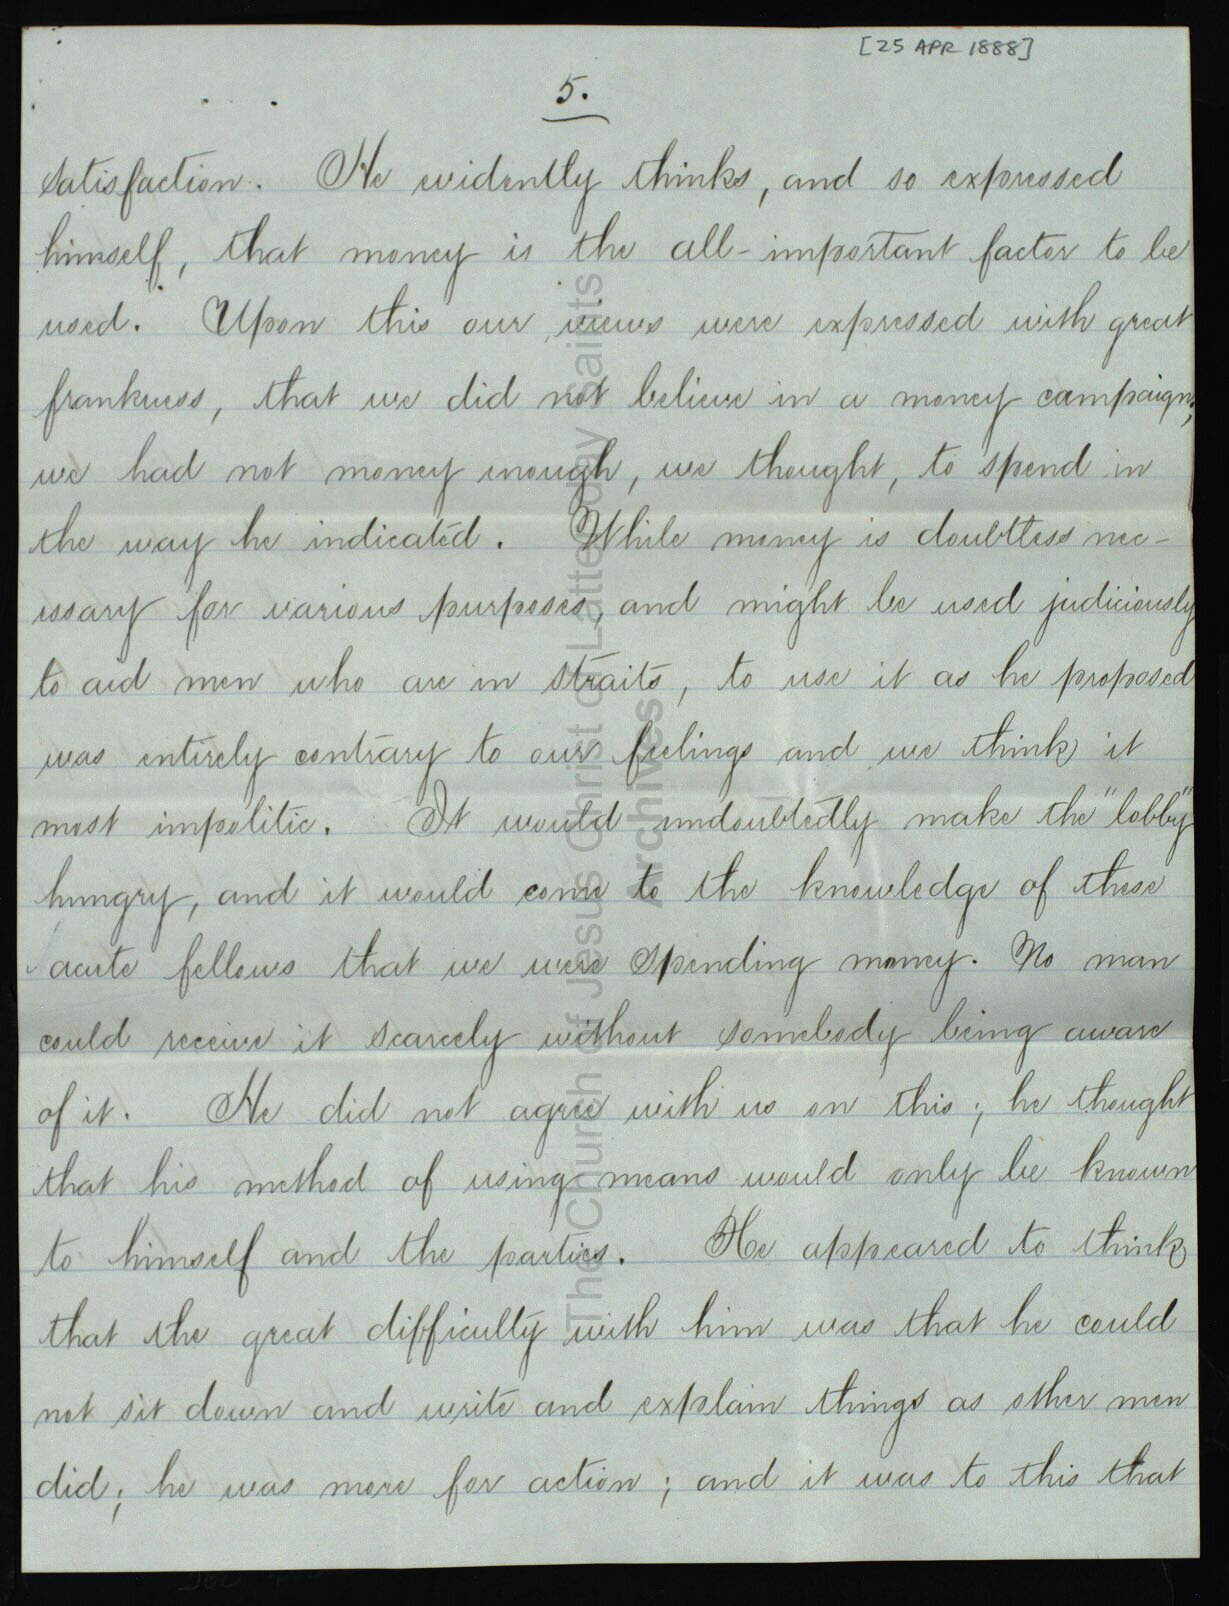 [25 APR 1888]
5.
satisfaction. He evidently thinks, and so expressed
himself, that money is the all-important factor to be
used. Upon this our views were expressed with great
frankness, that we did not believe in a money campaign;
we had not money enough, we thought, to spend in
the way he indicated. While money is doubtless nec-
essary for various purposes, and might be used judiciously
to aid men who are in straits, to use it as he proposed
was entirely contrary to our feelings and we think it
most impolitic. It would undoubtedly make the "lobby"
hungry, and it would come to the knowledge of these
acute fellows that we were spending money. No man
could receive it scarcely without somebody being aware
of it. He did not agree with us on this; he thought
that his method of using means would only be known
to himself and the parties. He appeared to think
that the great difficulty with him was that he could
not sit down and write and explain things as other men
did; he was more for action; and it was to this that
The Church of Jesus Christ of Latter-day Saints
Archives